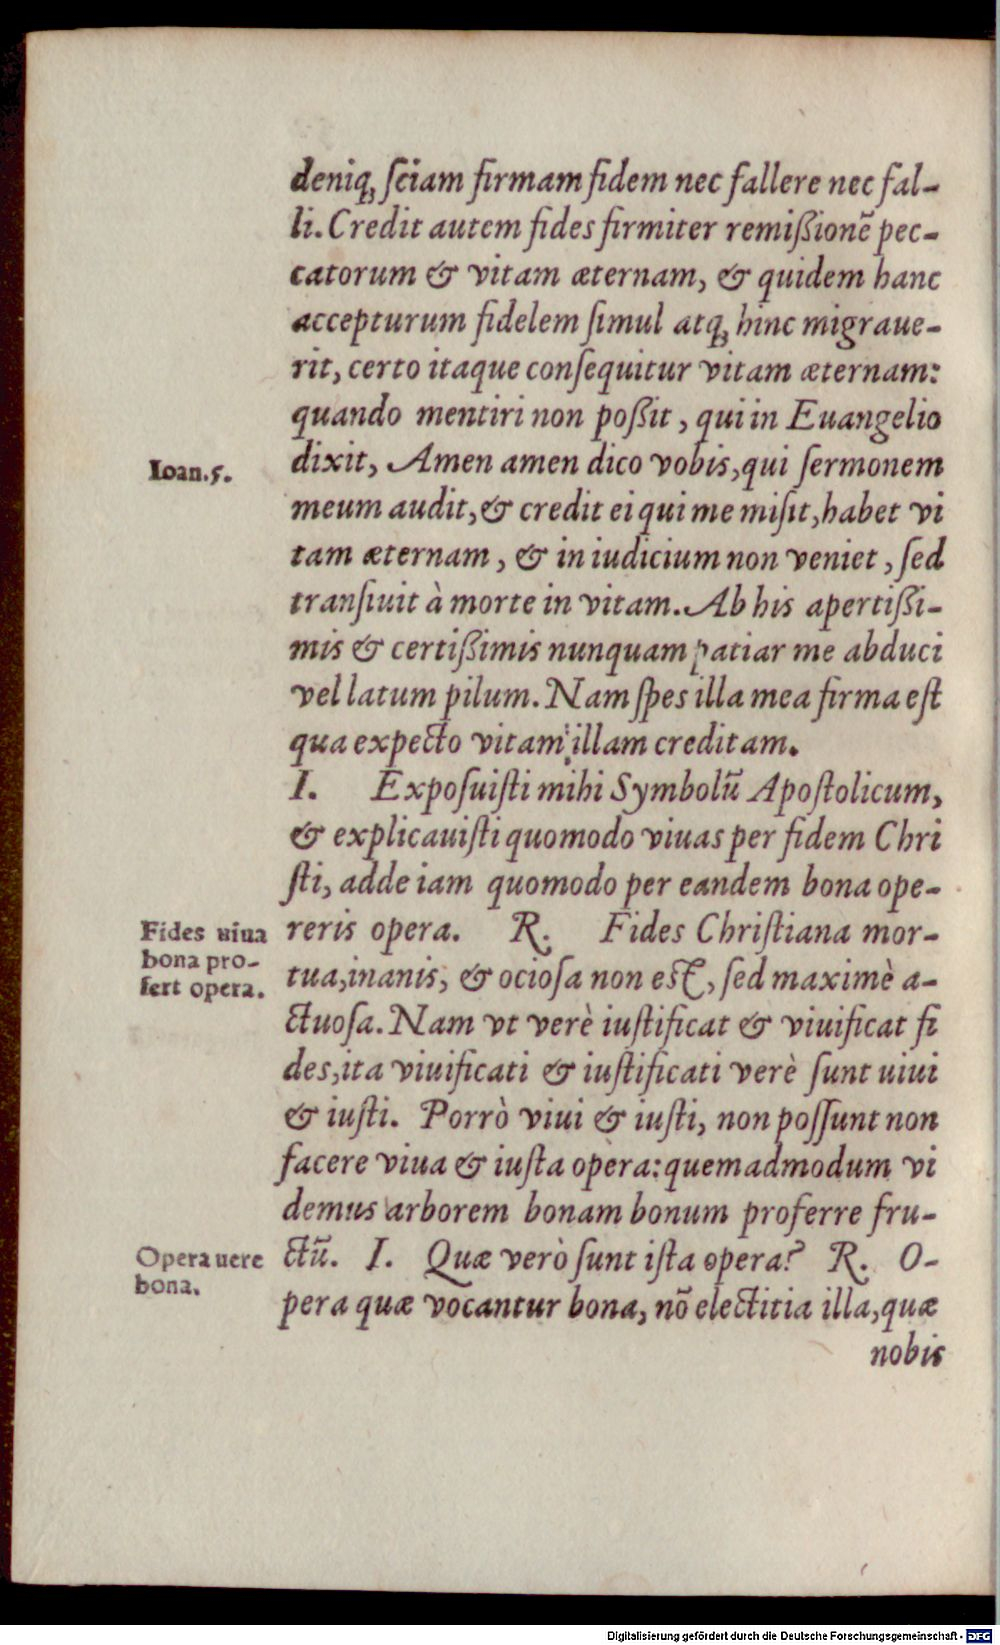 deniq; ſciam firmam fidem nec fallere nec fal-
li. Credit autem fides firmiter remißionē pec-
catorum & vitam æternam, & quidem hanc
accepturum fidelem ſimul atq; hinc migraue-
rit, certo itaque conſequitur vitam æternam:
quando mentiri non poßit, qui in Euangelio
Ioan.5.
dixit, Amen amen dico vobis, qui ſermonem
meum audit, & credit ei qui me miſit, habet vi
tam æternam, & in iudicium non veniet, ſed
tranſiuit à morte in vitam. Ab his apertißi-
mis & certißimis nunquam patiar me abduci
vel latum pilum. Nam ſpes illa mea firma eſt
qua expecto vitam illam creditam.
I. Expoſuiſti mihi Symbolū Apoſtolicum,
& explicauiſti quomodo viuas per fidem Chri
ſti, adde iam quomodo per eandem bona ope-
Fides uiua
bona pro-
fert opera.
reris opera. R. Fides Chriſtiana mor-
tua, inanis, & ocioſa non eſt, ſed maximè a-
ctuoſa. Nam vt verè iuſtificat & viuificat fi
des, ita viuificati & iuſtificati verè ſunt uiui
& iuſti. Porrò viui & iuſti, non poſſunt non
facere viua & iuſta opera: quemadmodum vi
demus arborem bonam bonum proferre fru-
Opera uere
bona.
ctū. I. Quæ verò ſunt iſta opera? R. O-
pera quæ vocantur bona, nō electitia illa, quæ
nobis
Digitalisierung gefördert durch die Deutsche Forschungsgemeinschaft - DFG